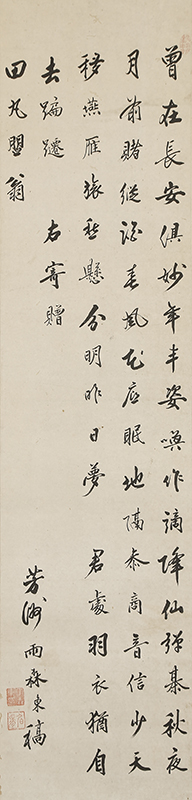 曾在長安俱妙年丰姿喚作謫降仙彈棊秋夜
月前賭縱酒春風花底眠地隔參商音信少天
移燕雁旅愁懸分明昨日夢君處羽衣猶自
去蹁躚 右寄贈
田丸盟翁
芳洲雨森東稿